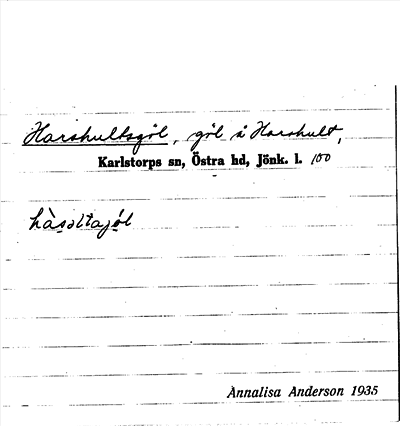 Harshultsgöl, göl å Harshult,
Karlstorps sn, Östra hd, Jönk. l. 100
hàsəltajö́l
Annalisa Anderson 1935